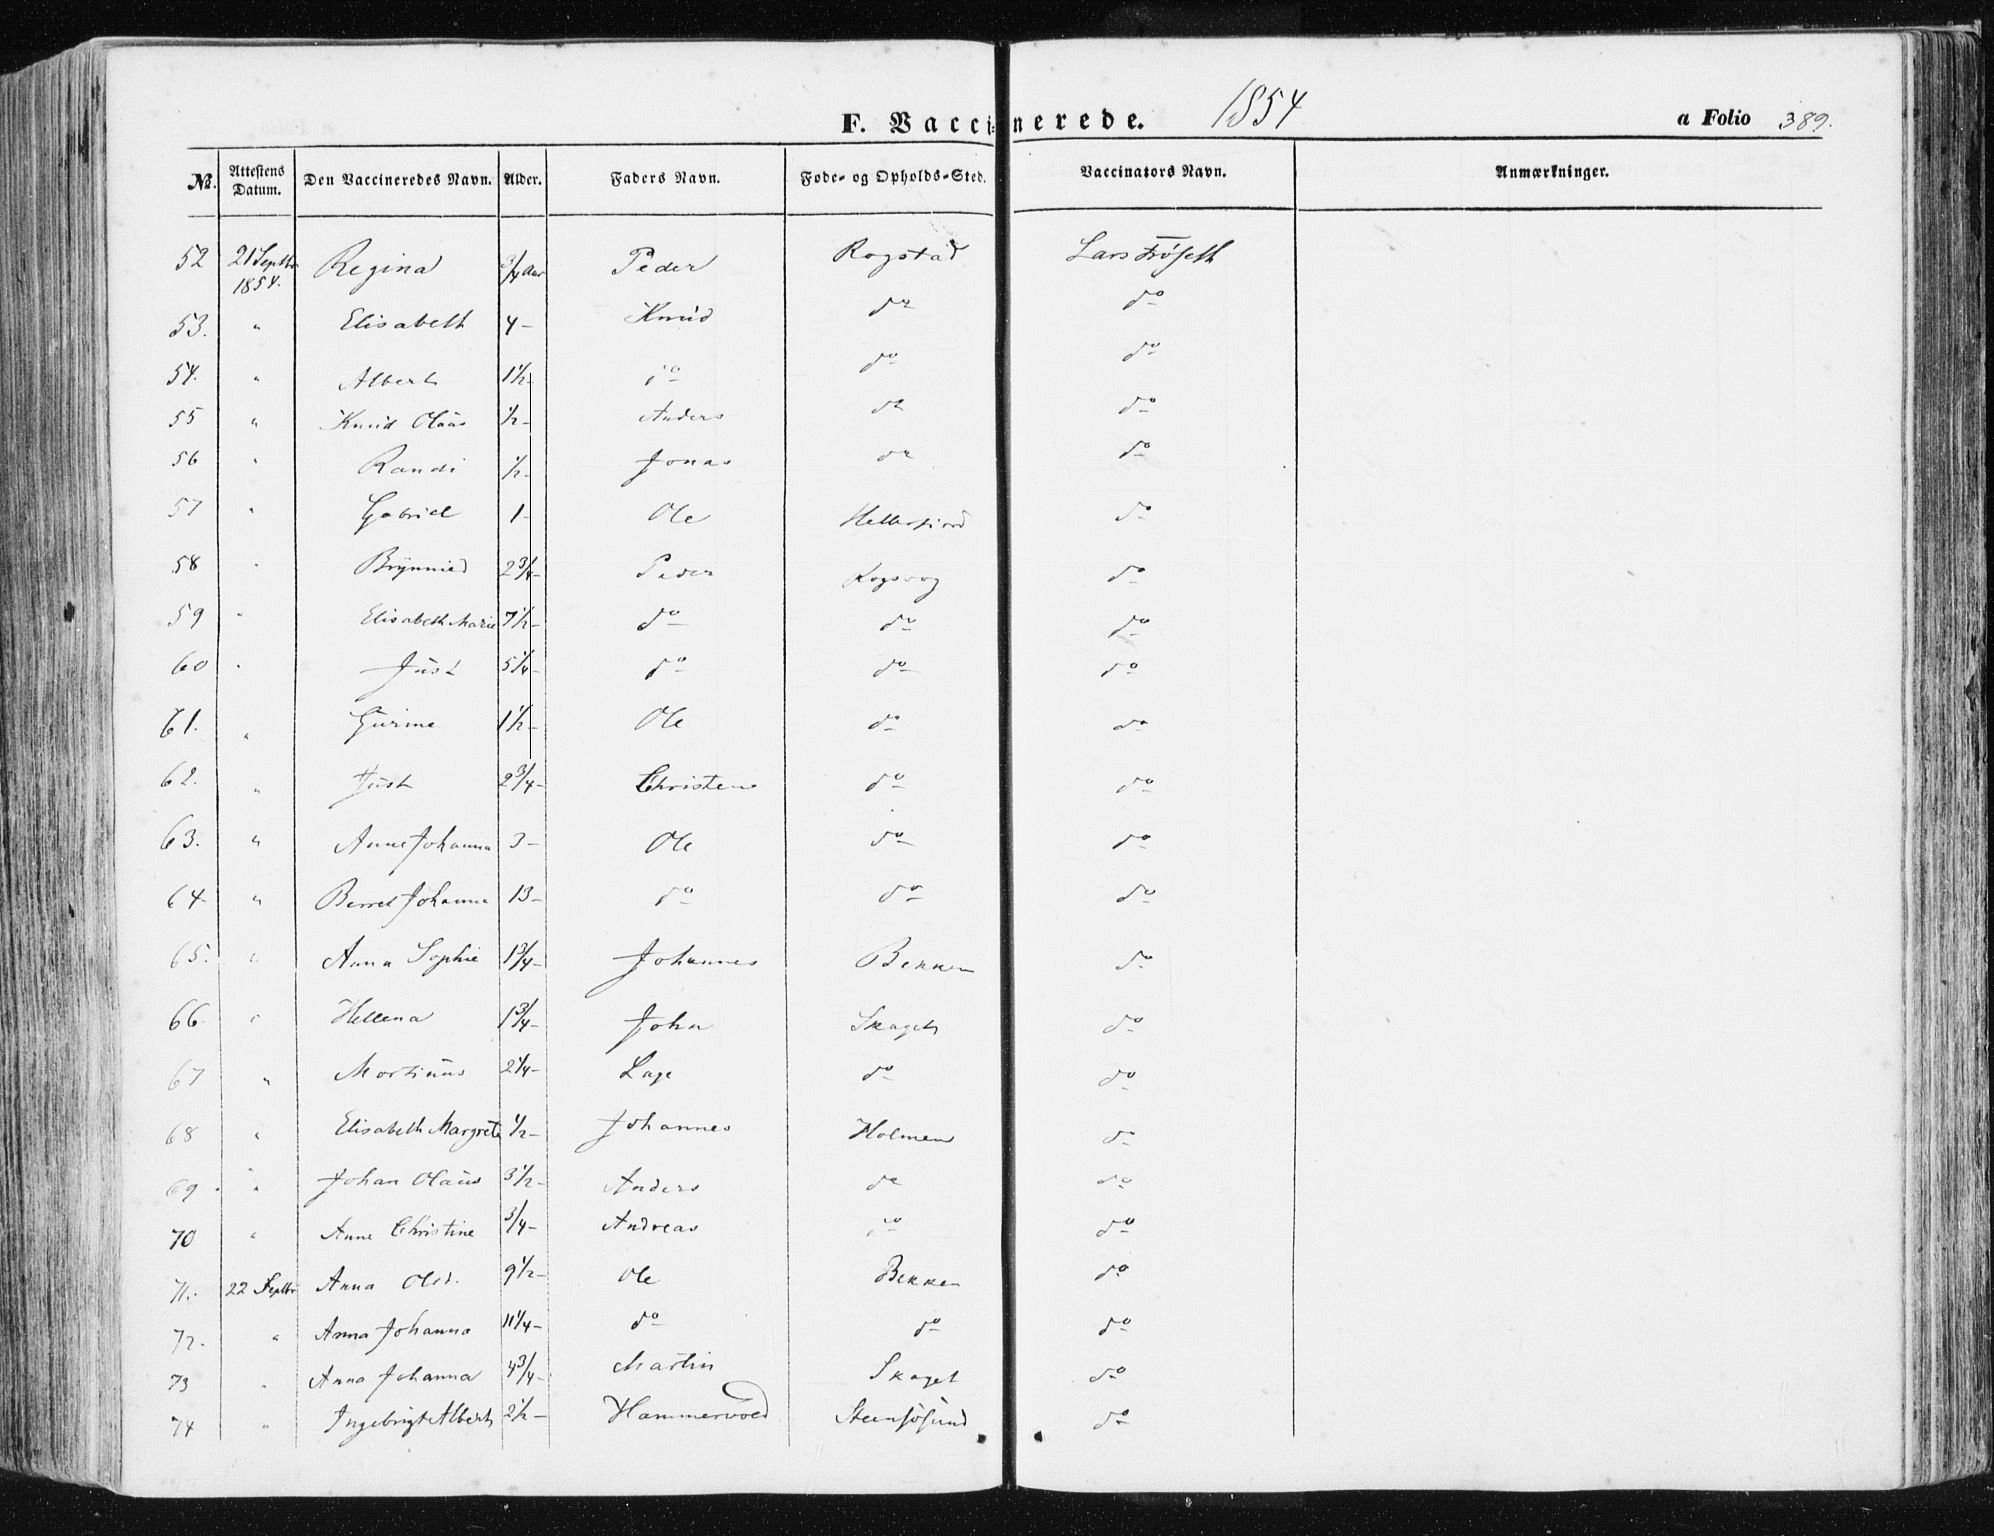 F. Vaccinerede. 1854 a Folio 389.
No. Attestens Datum. Den Vaccineredes Navn. Alder. Faders Navn. Føde- og Opholds-Sted. Vaccinators Navn. Anmærkninger.
52 21 Septbr 1854. Regina 3/4 Aar Peder Rogstad Lars Frøseth
53. " Elisabeth 4 - Knud do do
54. " Albert 1 1/2 - do do do
55 " Knud Olaus 1/2 - Anders do do
56 " Randi 1/2 - Jonas do do
57 " Gabriel 1 - Ole do
58 " 2 3/4 - Peder do
59 " Elisabeth Marie 7 1/2 - do do do
60 " Just 5 1/4 - do do do
61. " Gurine 1 1/2 - Ole do do
62. " Just 2 3/4 - Christen do do
63. " Anne Johanna 3 - Ole do do
64. " Berret Johanna 13 - do do do
65. " Anna Sophie 1 3/4 - Johannes Bekken do
66. " Hellena 1 3/4 - John Skaget do
67 " Mortinus 2 1/4 - Lage do do
68 " Elisabeth Margrete 1/2 - Johannes Holmen do
69 " Johan Olaus 3 1/2 - Anders do do
70 " Anne Christine 3/4 - Andreas do do
71. 22 Septbr Anna Olsd. 9 1/2 - Ole Bekken do
72. " Anna Johanna 11 1/4 - do do do
73 " Anna Johanna 4 3/4 - Martin Skaget do
74 " Ingebrigt Albert 2 1/2 - Hammervold do